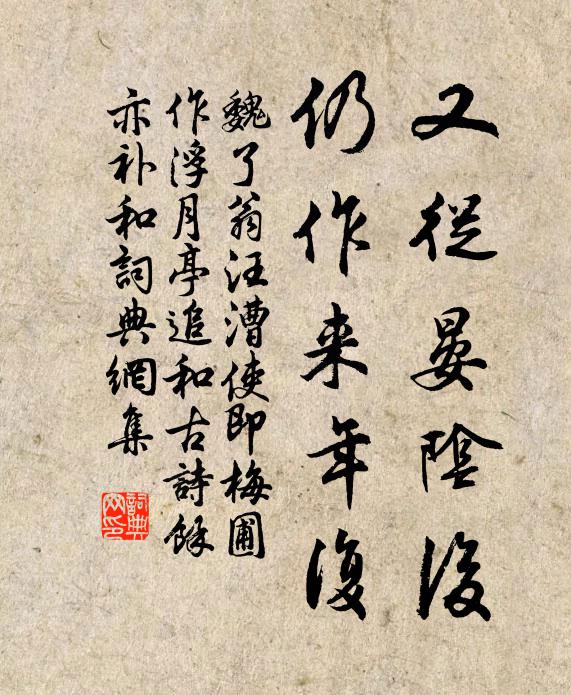 又從晏陰後
仍作来年復
魏了翁汪漕使即梅圃
作浮月亭追和古詩餘
亦补和詞典網集
詞典
网印